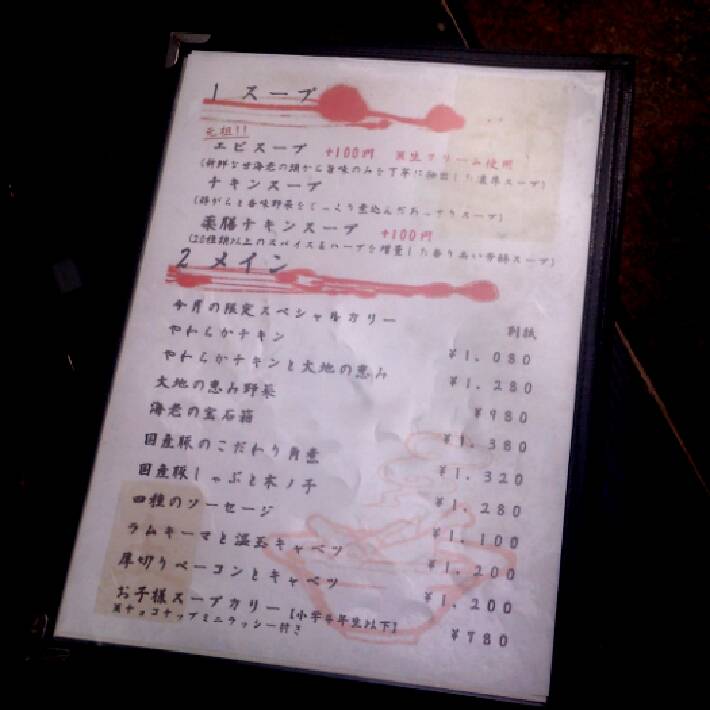 1 スープ
元祖!!
エビスープ +100円 ※生クリーム使用
(新鮮な甘海老の頭から旨味のみを丁寧に抽出した濃厚スープ)
チキンスープ
(鶏がらと香味野菜をじっくり煮込んだあっさりスープ)
薬膳チキンスープ +100円
(20種類以上のスパイス&ハーブを増量した香り高い薬膳スープ)
2 メイン
今月の限定スペシャルカリー 別紙
やわらかチキン ¥1.080
やわらかチキンと大地の恵み ¥1.280
大地の恵み野菜 ¥980
海老の宝石箱 ¥1.380
国産豚のこだわり角煮 ¥1.320
国産豚しゃぶと木ノ子 ¥1.280
四種のソーセージ ¥1.100
ラムキーマと温玉キャベツ ¥1.200
厚切りベーコンとキャベツ ¥1.200
お子様スープカリー【小学6年生以下】 ¥780
※ナッコナップミニラッシー付き